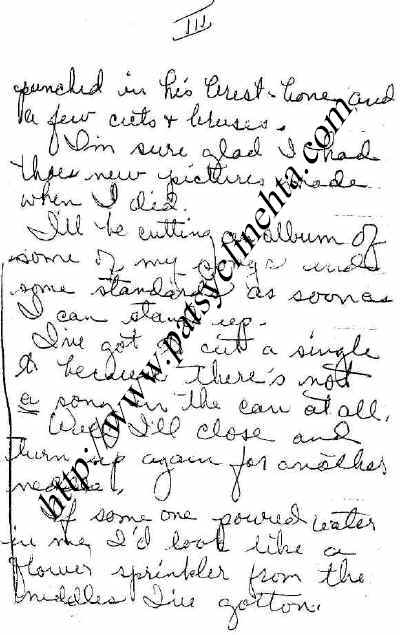 III
punched in his brest-bone and
a few cuts & bruses.
I'm sure glad I had
those new pictures made
when I did.
I'll be cutting an album of
some of my songs and
some standards as soon as
I can stand up.
I've got to cut a single
to because there's not
a song in the can at all.
Well I'll close and
turn up again for another
needle.
If some one poured water
in me, I'd look like a
flower sprinkler from the
neddles I've gotton.
http://www.patsyclinehta.com